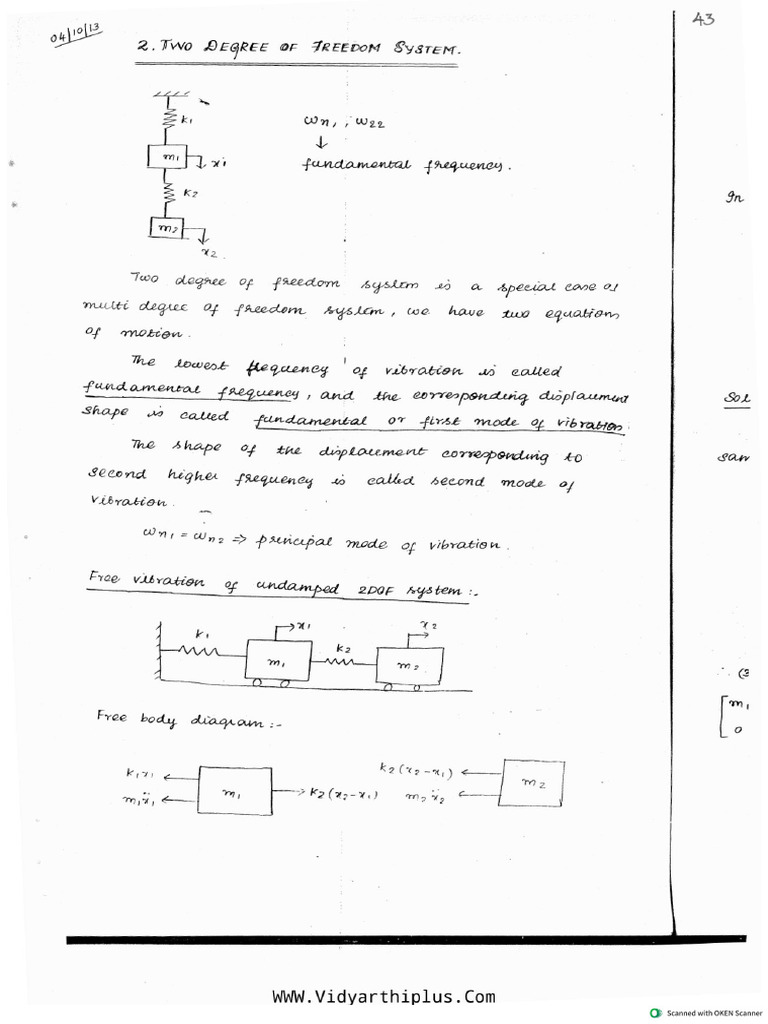 04/10/13
43
2. TWO DEGREE OF FREEDOM SYSTEM.
k1
m1
x1
k2
m2
x2
ωn1, ω22
↓
fundamental frequency.
Two degree of freedom system is a special case of
multi degree of freedom system, we have two equations
of motion.
The lowest frequency of vibration is called
fundamental frequency, and the corresponding displacement
shape is called fundamental or first mode of vibration.
The shape of the displacement corresponding to
second higher frequency is called second mode of
vibration.
ωn1 = ωn2 ⇒ principal mode of vibration.
Free vibration of undamped 2DOF system:-
k1
x1
m1
k2
x2
m2
Free body diagram:-
k1x1
m1ẍ1
m1
k2(x2-x1)
k2(x2-x1)
m2ẍ2
m2
In
Sol
sam
∴ (3
[m1
0
WWW.Vidyarthiplus.Com
Scanned with OKEN Scanner